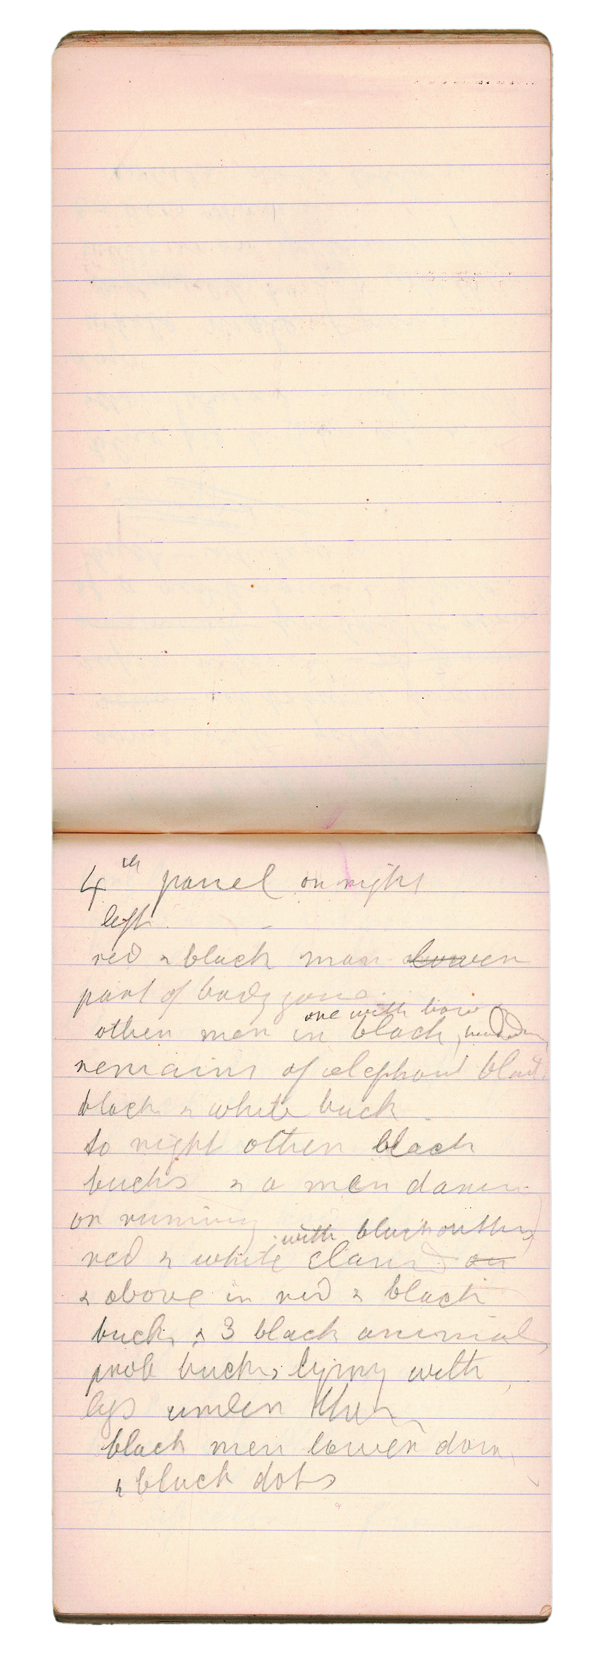 4th panel on right
left.
red & black man lower
part of body gone.
one with bow
other men in black,
remains of elephant black
black & white buck.
to right other black
bucks & a men dancin
or running
with black outline
red & white eland or
& above in red & black
bucks & 3 black animals
prob bucks lying with
legs under them
black men lower down
& black dots